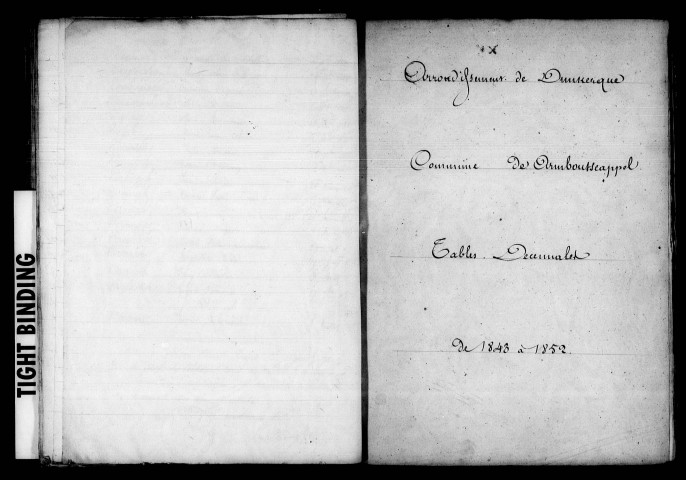 TIGHT BINDING
Arrondissement de Dunkerque
Commune de Armboutscappel
Tables Décennales
De 1843 à 1852.